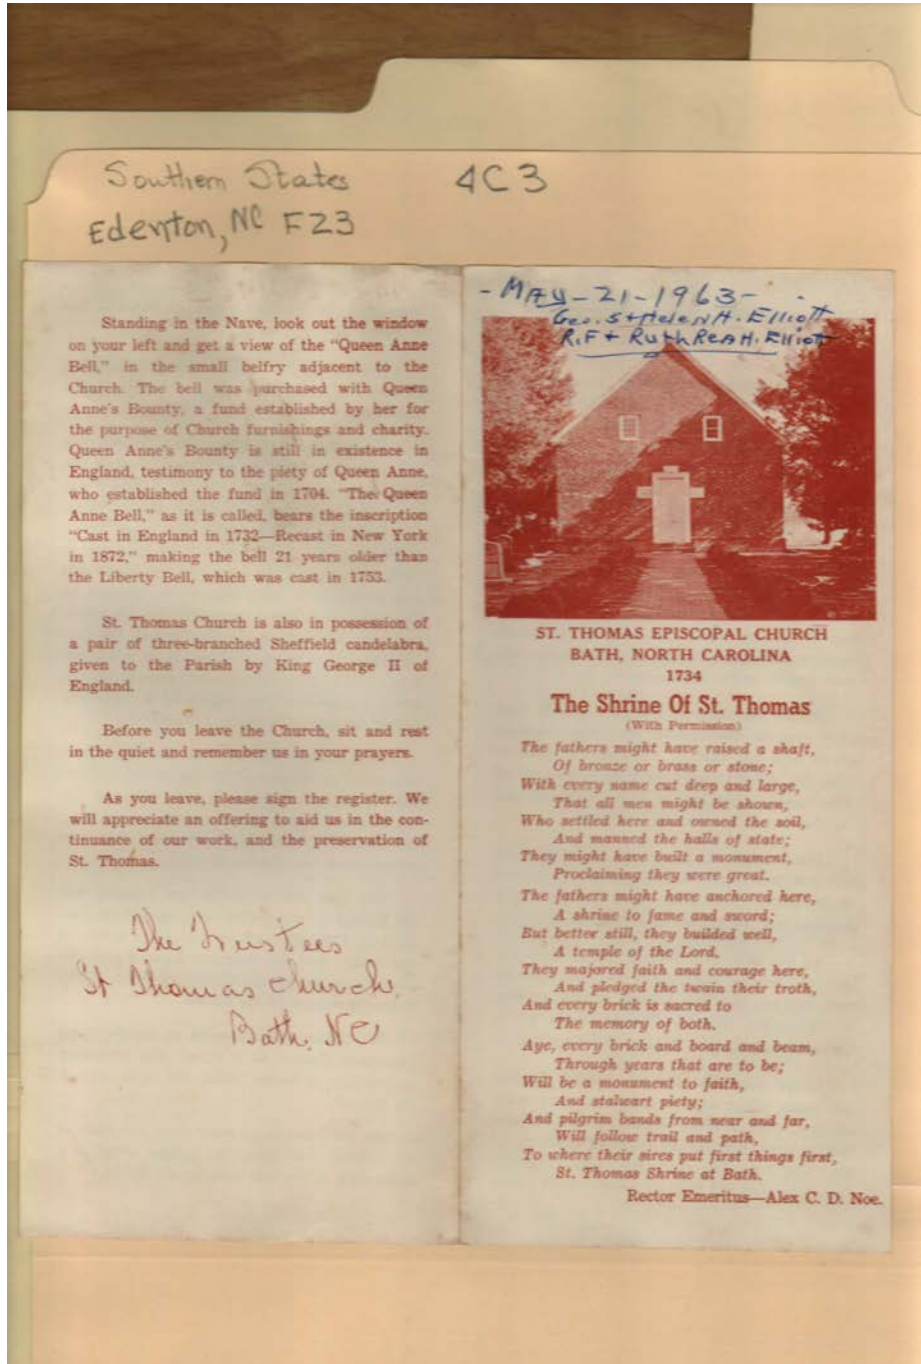 Southern States 4C3
Edenton, NC F23
Standing in the Nave, look out the window
on your left and get a view of the “Queen Anne
Bell,” in the small belfry adjacent to the
Church. The bell was purchased with Queen
Anne’s Bounty, a fund established by her for
the purpose of Church furnishings and charity.
Queen Anne’s Bounty is still in existence in
England, testimony to the piety of Queen Anne,
who established the fund in 1704. “The Queen
Anne Bell,” as it is called, bears the inscription
“Cast in England in 1732—Recast in New York
in 1872,” making the bell 21 years older than
the Liberty Bell, which was cast in 1753.
St. Thomas Church is also in possession of
a pair of three-branched Sheffield candelabra,
given to the Parish by King George II of
England.
Before you leave the Church, sit and rest
in the quiet and remember us in your prayers.
As you leave, please sign the register. We
will appreciate an offering to aid us in the con-
tinuance of our work, and the preservation of
St. Thomas.
The Trustees
St Thomas Church,
Bath, NC
- MAY - 21 - 1963 -
Geo. S + Helen H. Elliott
R.F + Ruth Rea H. Elliott
ST. THOMAS EPISCOPAL CHURCH
BATH, NORTH CAROLINA
1734
The Shrine Of St. Thomas
(With Permission)
The fathers might have raised a shaft,
Of bronze or brass or stone;
With every name cut deep and large,
That all men might be shown,
Who settled here and owned the soil,
And manned the halls of state;
They might have built a monument,
Proclaiming they were great.
The fathers might have anchored here,
A shrine to fame and sword;
But better still, they builded well,
A temple of the Lord,
They majored faith and courage here,
And pledged the twain their troth,
And every brick is sacred to
The memory of both.
Aye, every brick and board and beam,
Through years that are to be;
Will be a monument to faith,
And stalwart piety;
And pilgrim bands from near and far,
Will follow trail and path,
To where their sires put first things first,
St. Thomas Shrine at Bath.
Rector Emeritus—Alex C. D. Noe.